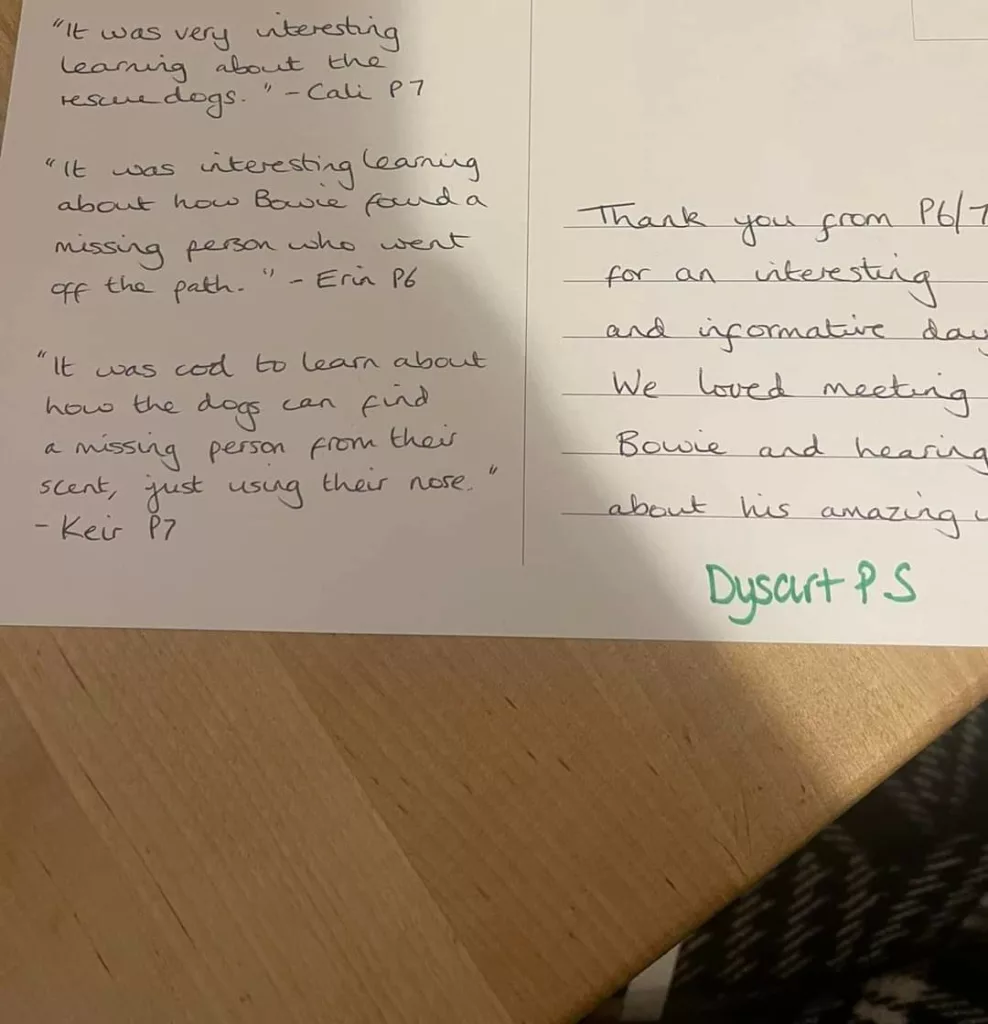 "It was very interesting
learning about the
rescue dogs." - Cali P7
"It was interesting learning
about how Bowie found a
missing person who went
off the path." - Erin P6
"It was cool to learn about
how the dogs can find
a missing person from their
scent, just using their nose."
- Keir P7
Thank you from P6/7
for an interesting
and informative day
We loved meeting
Bowie and hearing
about his amazing
Dysart P S